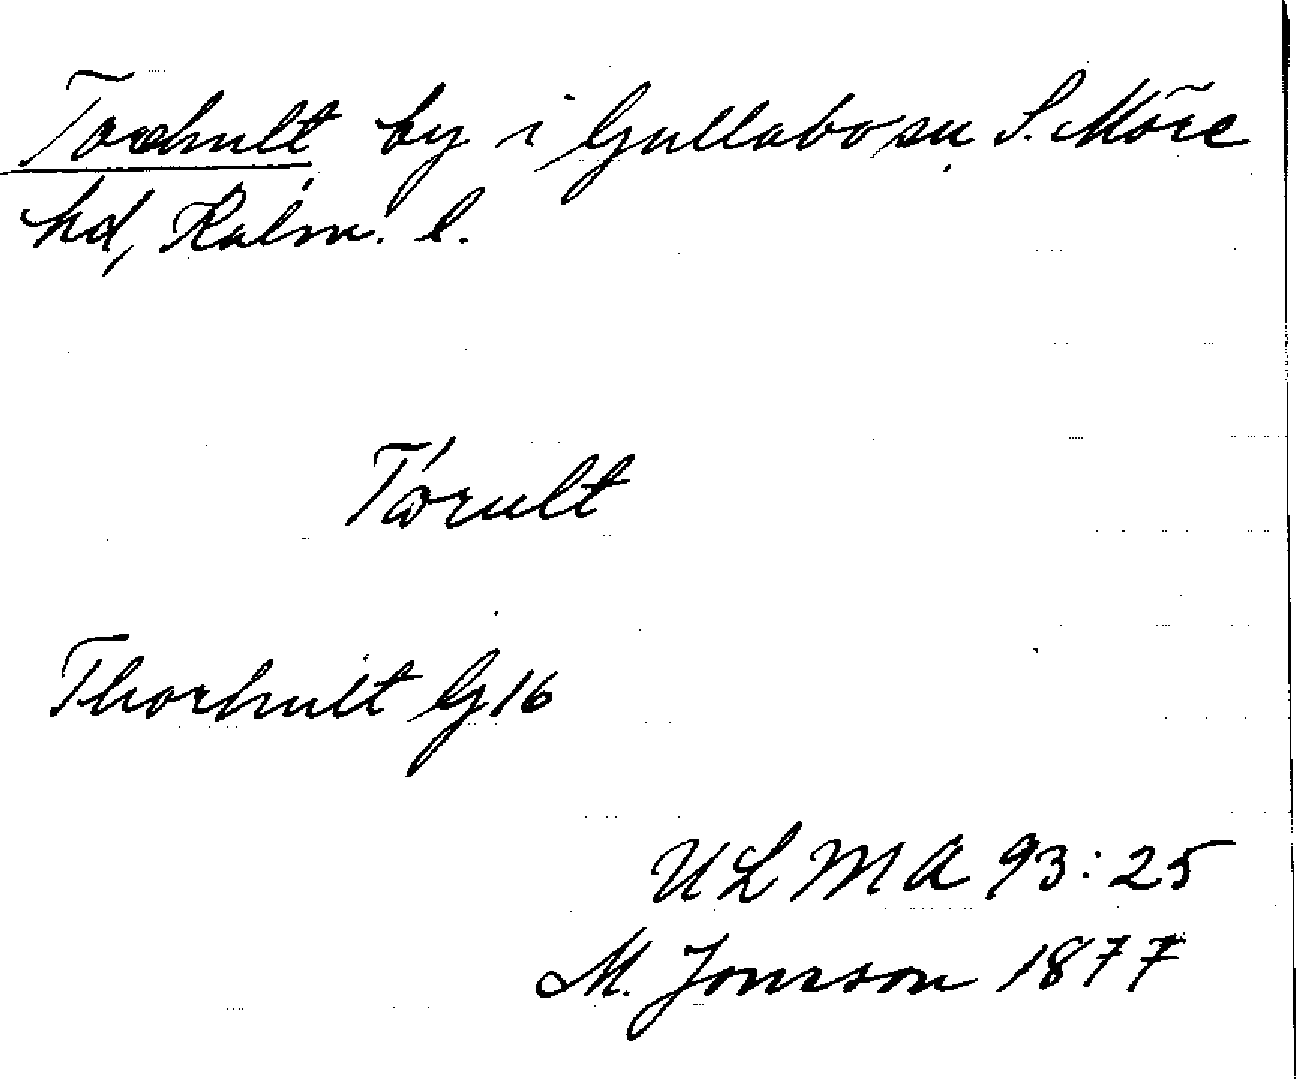 Torhult by i Gullabo sn, S. Möre
hd, Kalm. l.
Tórult
Thorhult G16
ULMA 93:25
M. Jonsson 1877